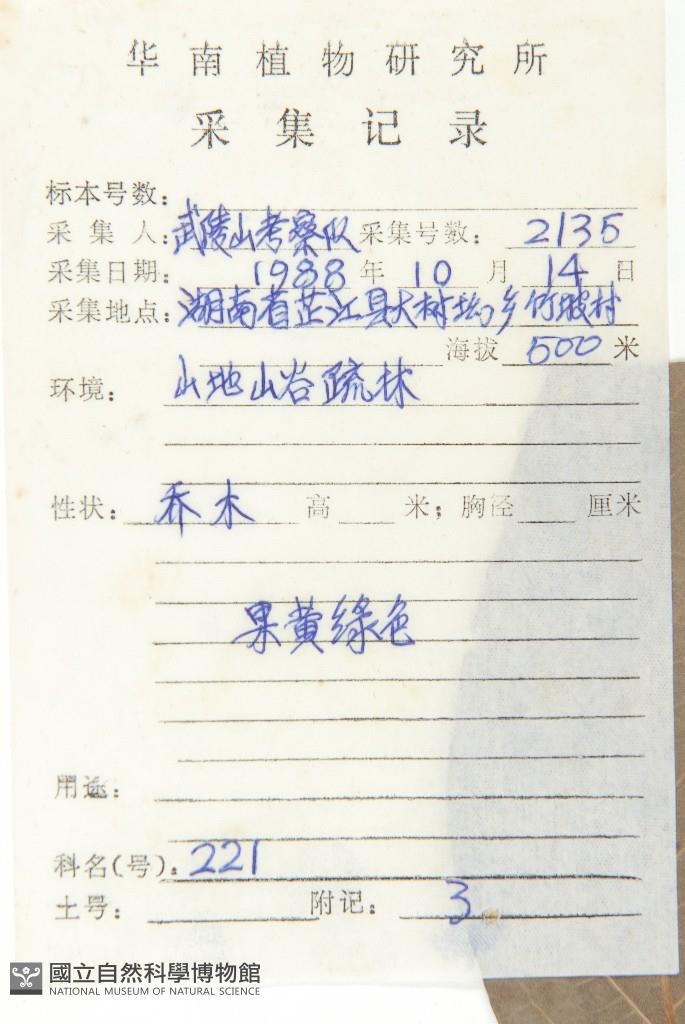 华南植物研究所
采集记录
标本号数:
采集人:武陵山考察队 采集号数: 2135
采集日期: 1988 年 10 月 14 日
采集地点:湖南省芷江县大树坳乡竹坡村
海拔 500 米
环境: 山地山谷疏林
性状: 乔木 高 米; 胸径 厘米
果黄绿色
用途:
科名(号):221
土号: 附记: 3
國立自然科學博物館
NATIONAL MUSEUM OF NATURAL SCIENCE